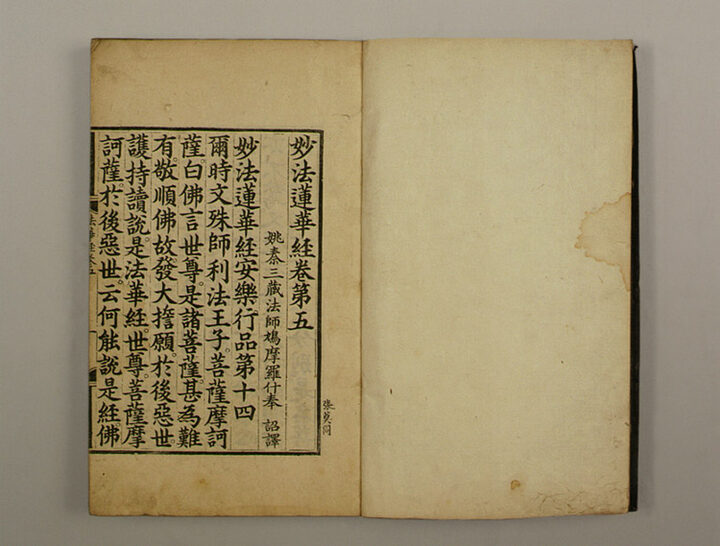 妙法蓮華經卷第五
姚秦三藏法師鳩摩羅什奉 詔譯
妙法蓮華經安樂行品第十四
爾時文殊師利法王子菩薩摩訶
薩。白佛言世尊。是諸菩薩。甚為難
有。敬順佛故。發大誓願。於後惡世。
護持讀說。是法華經。世尊。菩薩摩
訶薩。於後惡世。云何能說是經佛